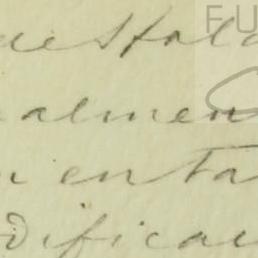 FU
desfal
almen
n enta
dificac